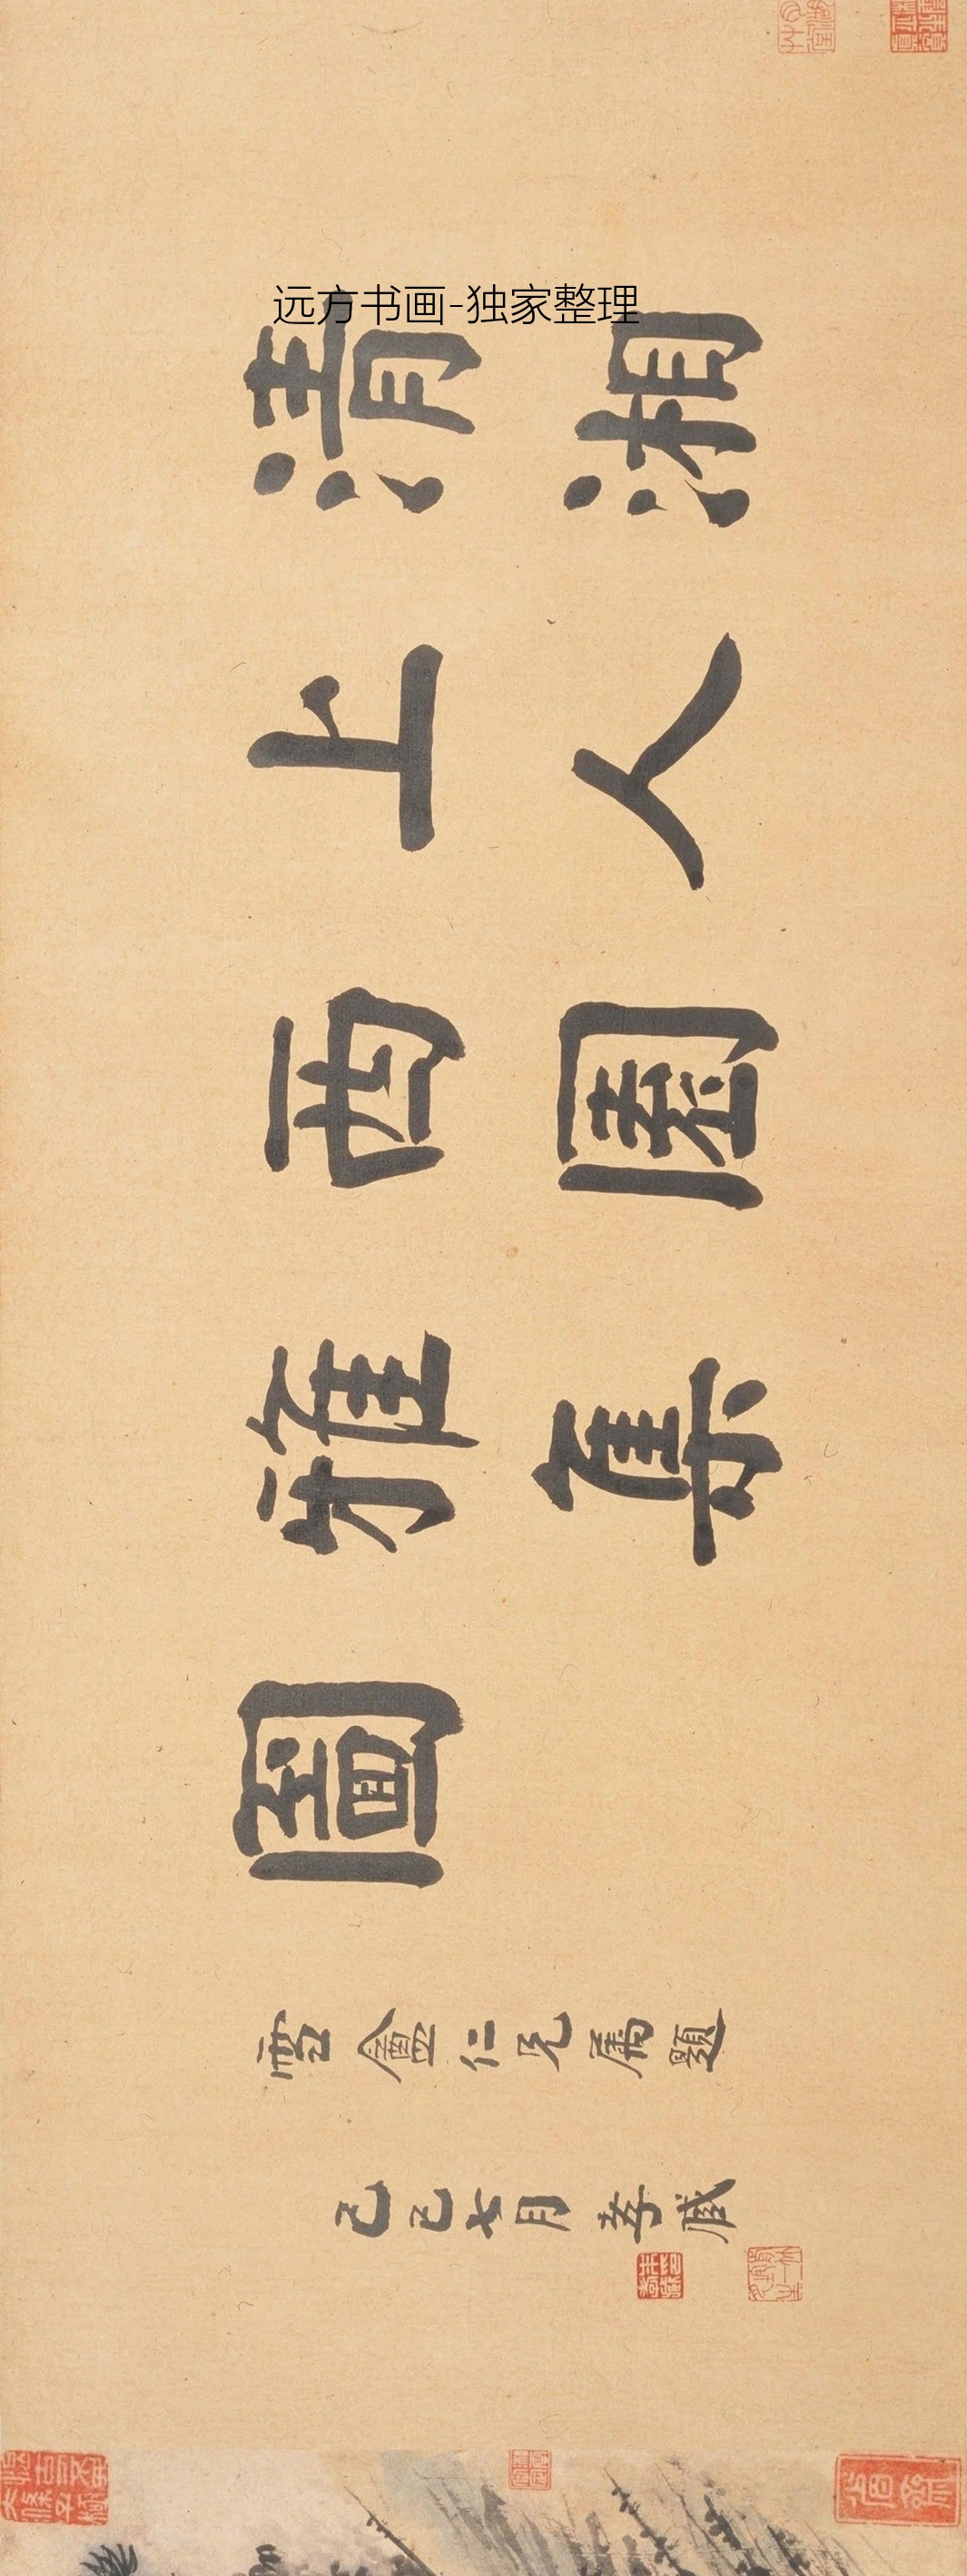 远方书画-独家整理
清湘
上人
西園
雅集
圖
雪盦仁兄屬題
己巳七月孝臧